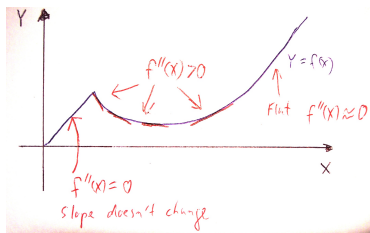 Y
f''(x)>0
Y=f(x)
Flat f''(x)≈0
X
f''(x)=0
Slope doesn't change